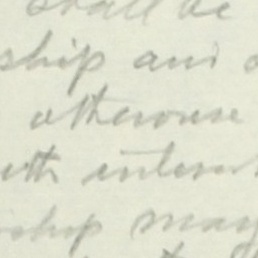 shall be
ship and
otherwise
with interest
ship may